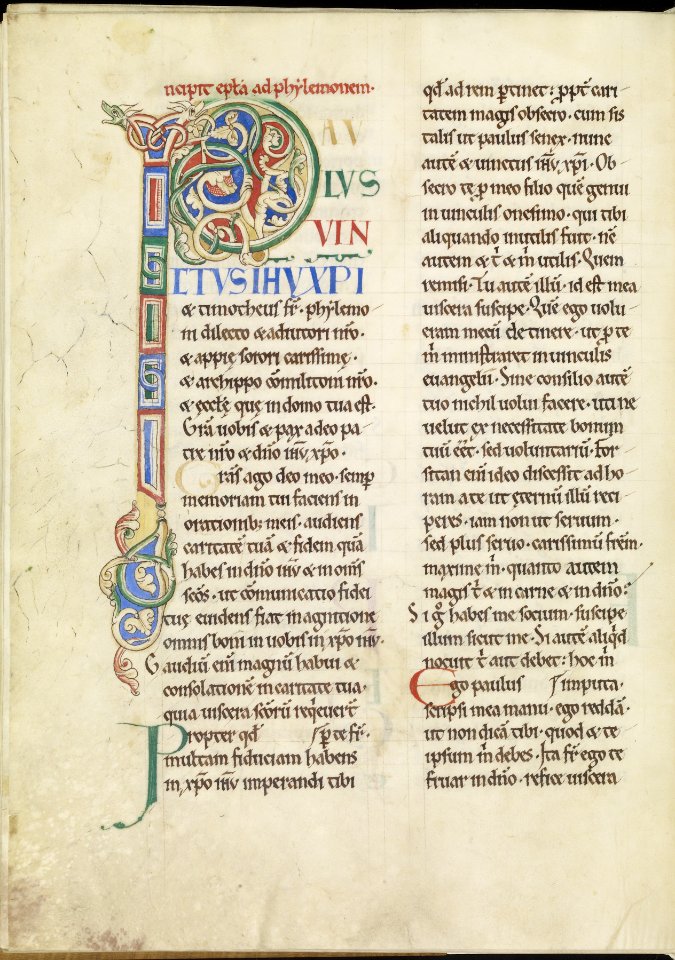 Incipit epła ad phylemonem.
PAV
LVS
VIN
CTUS IHV XPI
& timotheus fr̄. phylemo
ni dilecto & adiutori nr̄o.
& appię sorori carissimę.
& archippo cōmilitoni nr̄o.
& ecclę quę in domo tua est.
Gr̄a uobis & pax a deo pa
tre nr̄o & dn̄o ihv̄ xp̄o.
Gr̄as ago deo meo. semp̄
memoriam tui faciens in
orationib; meis. audiens
caritatē tuā & fidem quā
habes in dn̄o ihv̄ & in om̄s
sc̄os. ut cōmunicatio fidei
tuę euidens fiat in agnitione
omnis boni in uobis in xp̄o ihv̄.
Gaudiū eni̅ magnū habui &
consolationē in caritate tua.
quia uiscera sc̄orū req̇euert̄
Propter qd̄ p̱ te fr̄.
multam fiduciam habens
in xp̄o ihv̄ imperandi tibi
qd̄ ad rem p̱tinet: ꝓpt̄ cari
tatem magis obsecro. cum sis
talis ut paulus senex. nunc
autē & uinctus ihv̄ xp̄i. Ob
secro te p̱ meo filio quē genui
in uinculis onesimo. qui tibi
aliquando inutilis fuit. nc̄
autem & t̄ & m̄ utilis. Quem
remisi. Tu autē illū. id est mea
uiscera suscipe. Quē ego uolu
eram mecū detinere. ut p̱ te
m̄ ministraret in uinculis
euangelii. Sine consilio autē
tuo nichil uolui facere. uti ne
uelut ex necessitate bonum
tuū eēt. sed uoluntariū. For
sitan eni̅ ideo discessit ad ho
ram a te ut ęternū illū reci
peres. iam non ut seruum.
sed plus seruo. carissimū frēm.
maxime m̄. quanto autem
magis t̄ & in carne & in dn̄o:
Si g̊ habes me socium. suscipe
illum sicut me. Si autē aliq̇d
nocuit t̄ aut debet: hoc m̄
Ego paulus imputa.
scripsi mea manu. ego reddā.
ut non dicā tibi. quod & te
ipsum m̄ debes. Ita fr̄ ego te
fruar in dn̄o. refice uiscera